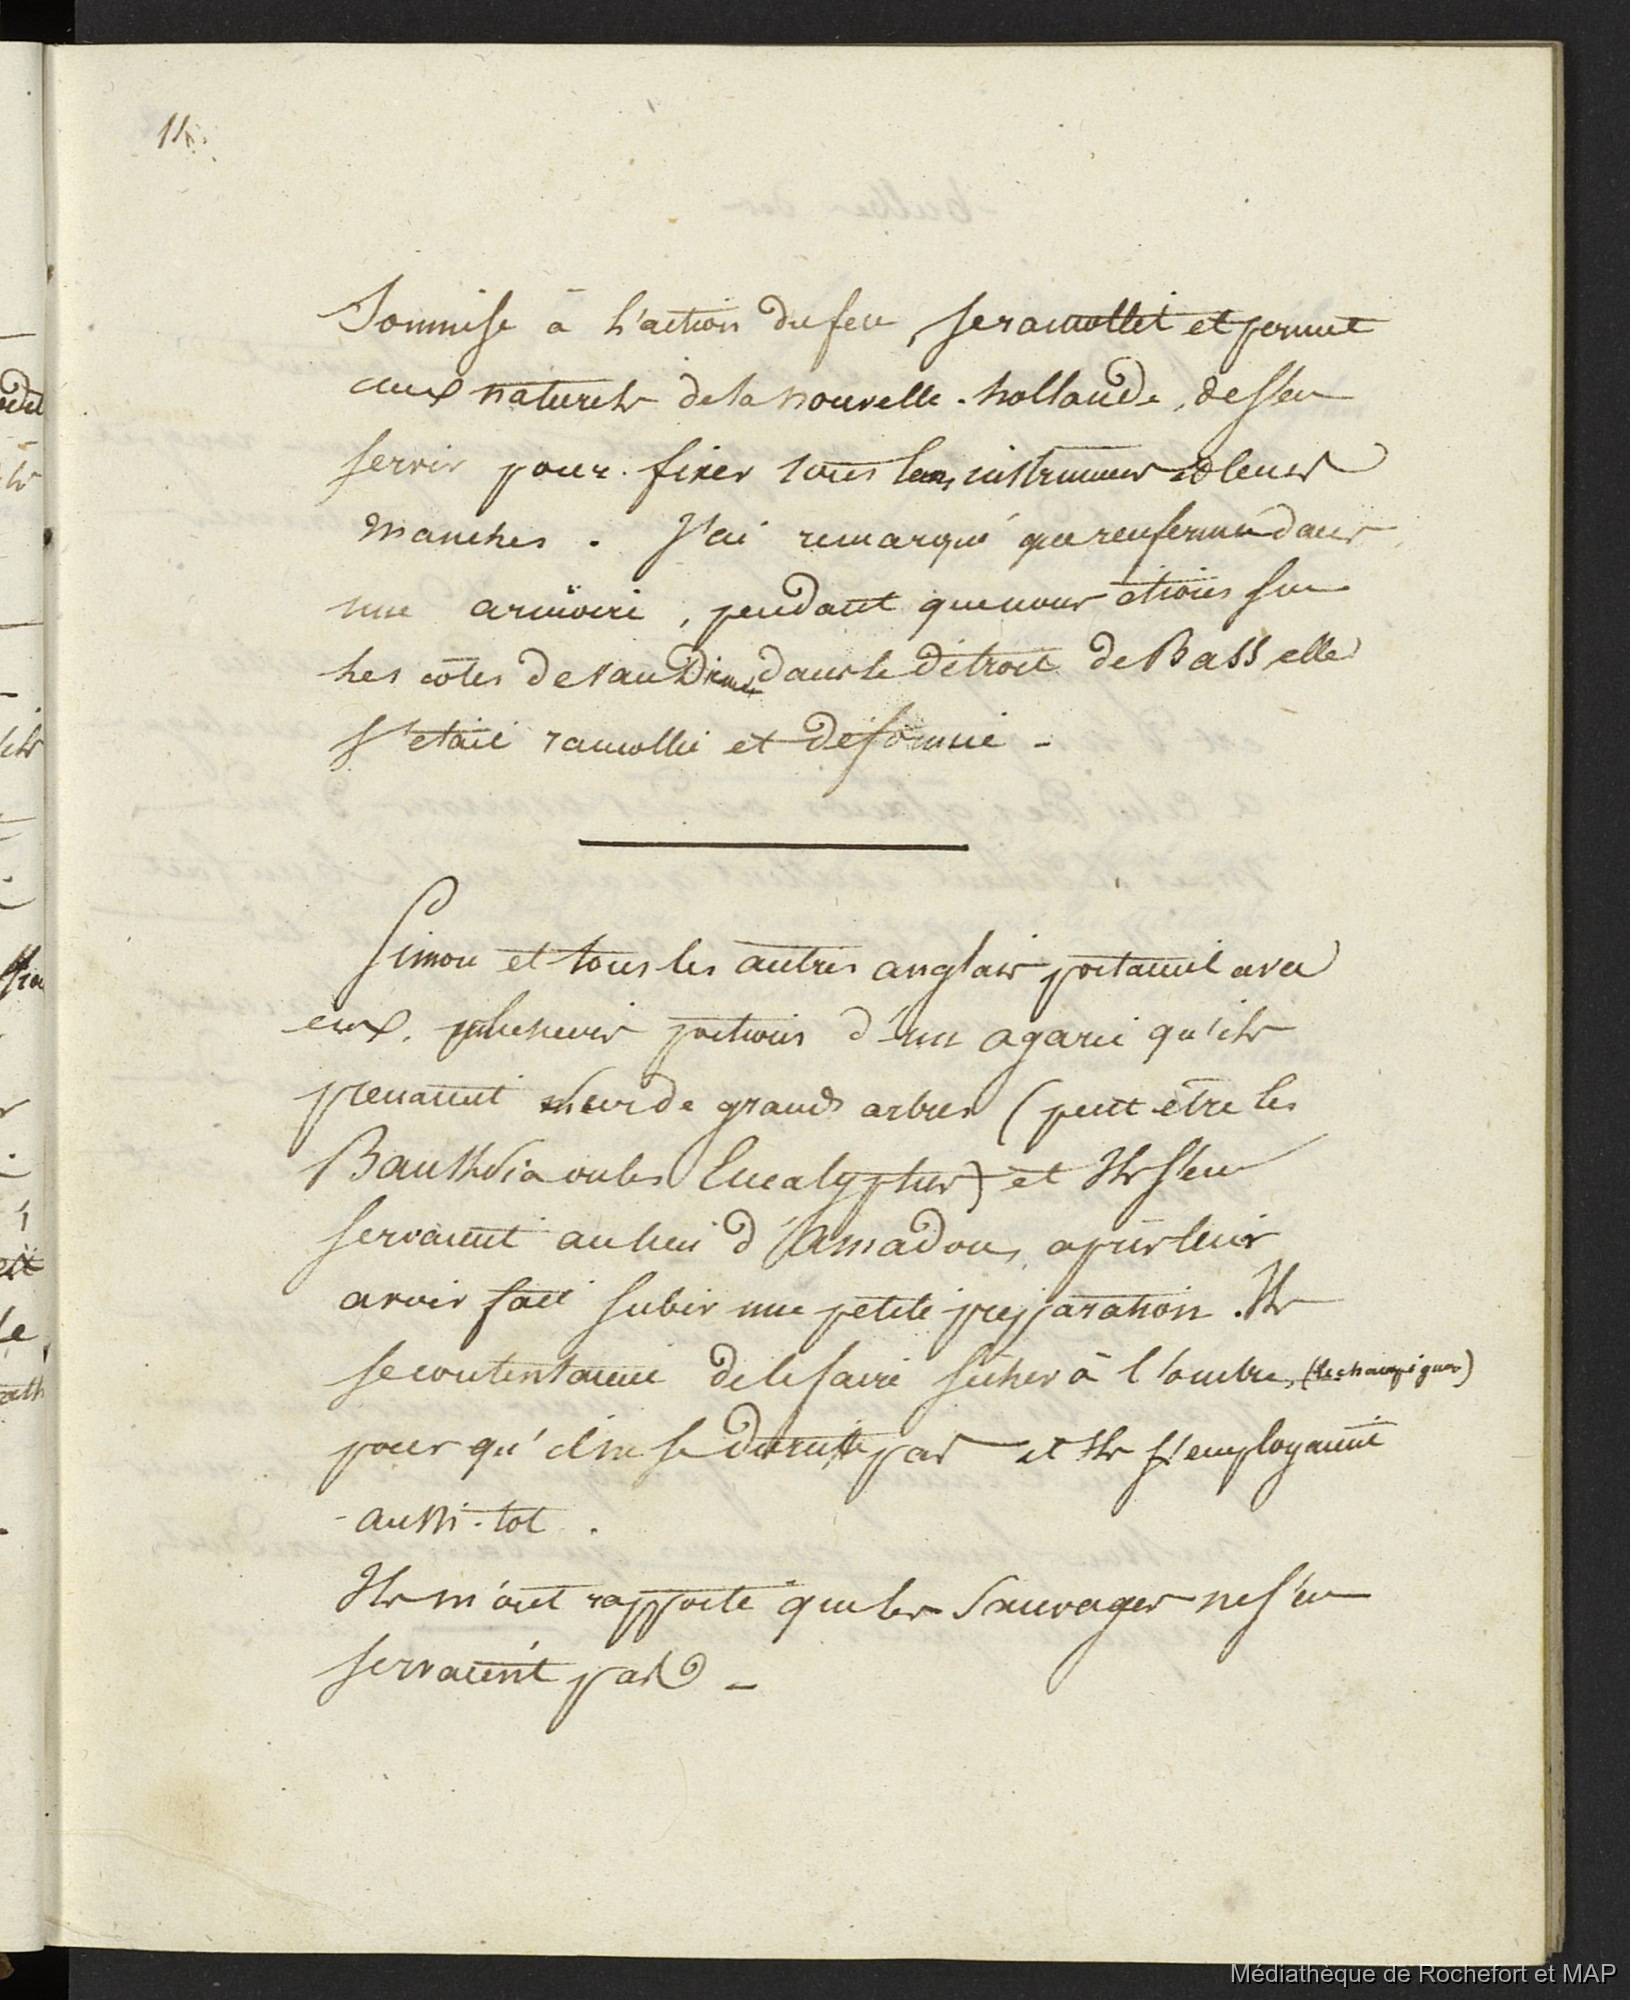 14.
Soumise à l'action du feu, se ramollit et permet
aux naturels de la nouvelle-hollande, de s'en
servir pour fixer tous leurs instrumens à leurs
manches. J'ai remarqué que renfermée dans
une armoire, pendant que nous étions sur
les côtes de van Diemen dans le détroit de Bass elle
s'etait ramollie et déformée -
Simon et tous les autres anglais portaient avec
eux, plusieurs portions d'un agaric qu'ils
prenaient sur de grands arbres (peut être les
Banksia ou les Eucalyptus) et Ils s'en
servaient au lieu d'Amadou, après leur
avoir fait subir une petite préparation. Ils
se contentaient de le faire sécher à l'ombre, (le champignon)
pour qu'il ne se durcitte pas et Ils l'employaient
aussi-tot.
Ils m'ont rapporté que les Sauvages ne s'en
servaient pas -
Médiathèque de Rochefort et MAP